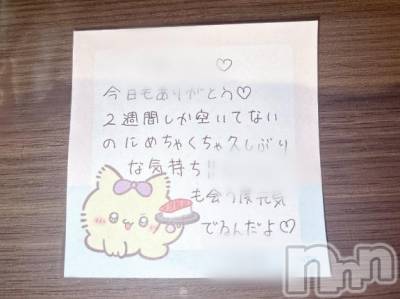 ♡
今日もありがとう♡
2週間しか空いてない
のにめちゃくちゃ久しぶり
な気持ち!!
も会う度元気
でるんだよ♡